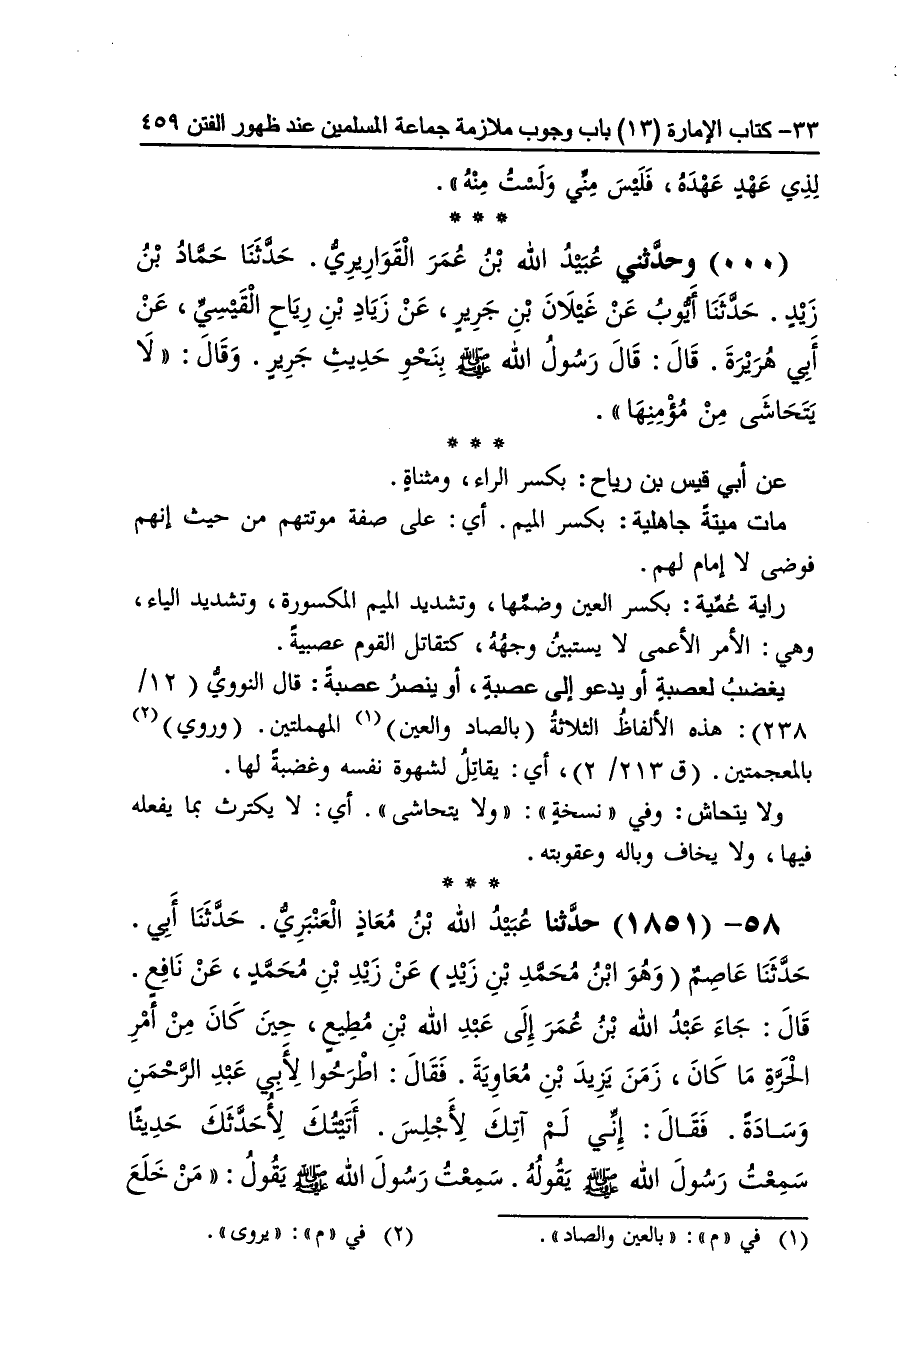 ٣٣- كتاب الإمارة (١٣) باب وجوب ملازمة جماعة المسلمين عند ظهور الفتن ٤٥٩
لِذِي عَهْدٍ عَهْدَهُ ، فَلَيْسَ مِنِّي وَلَسْتُ مِنْهُ » .
* * *
(٠٠٠) وحدَّثني عُبَيْدُ الله بْنُ عُمَرَ الْقَوَارِيرِيُّ . حَدَّثَنَا حَمَّادُ بْنُ
زَيْدٍ . حَدَّثَنَا أَيُّوبُ عَنْ غَيْلَانَ بْنِ جَرِيرٍ ، عَنْ زَيَادِ بْنِ رِيَاحٍ الْقَيْسِيِّ ، عَنْ
أَبِي هُرَيْرَةَ . قَالَ : قَالَ رَسُولُ الله ﷺ بِنَحْوِ حَدِيثِ جَرِيرٍ . وَقَالَ : « لَا
يَتَحَاشَى مِنْ مُؤْمِنِهَا » .
* * *
عن أبي قيس بن رياح : بكسر الراء ، ومثناةٍ .
مات ميتةً جاهلية : بكسر الميم . أي : على صفة موتتهم من حيث إنهم
فوضى لا إمام لهم .
راية عُمِّية : بكسر العين وضمِّها ، وتشديد الميم المكسورة ، وتشديد الياء ،
وهي : الأمر الأعمى لا يستبينُ وجههُ ، كتقاتل القوم عصبيةً .
يغضبُ لعصبةٍ أو يدعو إلى عصبةٍ ، أو ينصرُ عصبةً : قال النوويُّ ( ١٢/
٢٣٨) : هذه الألفاظُ الثلاثةُ (بالصاد والعين)(١) المهملتين . (وروي)(٢)
بالمعجمتين . (ق ٢١٣/ ٢) ، أي : يقاتِلُ لشهوة نفسه وغضبةً لها .
ولا يتحاش : وفي « نسخةٍ » : « ولا يتحاشى » . أي : لا يكترث بما يفعله
فيها ، ولا يخاف وباله وعقوبته .
* * *
٥٨- (١٨٥١) حدَّثنا عُبَيْدُ الله بْنُ مُعَاذٍ الْعَنْبَرِيُّ . حَدَّثَنَا أَبِي .
حَدَّثَنَا عَاصِمٌ ( وَهُوَ ابْنُ مُحَمَّدِ بْنِ زَيْدٍ ) عَنْ زَيْدِ بْنِ مُحَمَّدٍ ، عَنْ نَافِعٍ .
قَالَ : جَاءَ عَبْدُ الله بْنُ عُمَرَ إِلَى عَبْدِ الله بْنِ مُطِيعٍ ، حِينَ كَانَ مِنْ أَمْرِ
الْحَرَّةِ مَا كَانَ ، زَمَنَ يَزِيدَ بْنِ مُعَاوِيَةَ . فَقَالَ : اطْرَحُوا لِأَبِي عَبْدِ الرَّحْمَنِ
وَسَادَةً . فَقَالَ : إِنِّي لَمْ آتِكَ لِأَجْلِسَ . أَتَيْتُكَ لِأُحَدِّثَكَ حَدِيثًا
سَمِعْتُ رَسُولَ الله ﷺ يَقُولُهُ . سَمِعْتُ رَسُولَ الله ﷺ يَقُولُ : « مَنْ خَلَعَ
(١) في « م » : « بالعين والصاد » . (٢) في « م » : « يروى » .